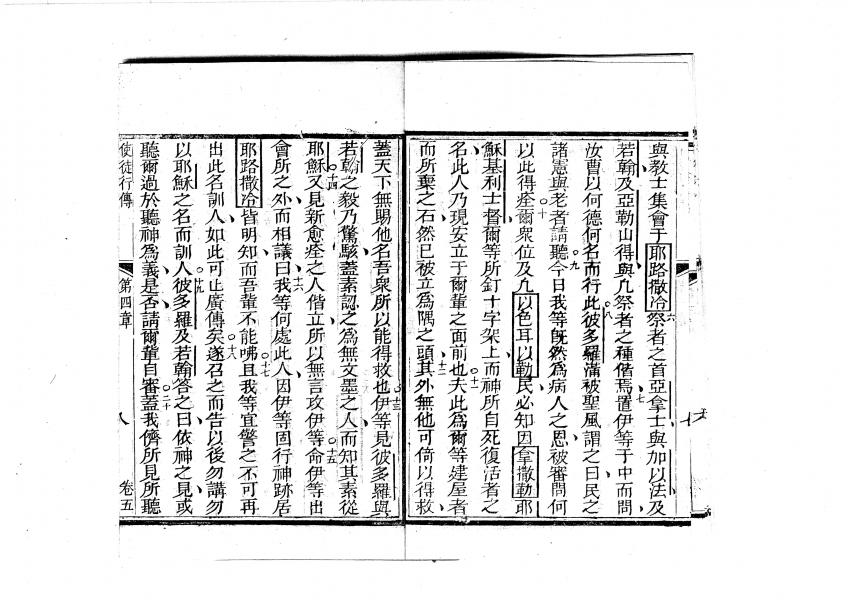 與教士集會于耶路撒冷祭者之首亞拿士與加以法及
若翰及亞勒山得與凢祭者之種偕焉置伊等于中而問
汝曹以何德何名而行此彼多羅滿被聖風謂之曰民之
諸憲與老者請聽今日我等旣然為病人之恩被審問何
以此得痊爾衆位及凢以色耳以勒民必知因拿撒勒耶
穌基利士督爾等所釘十字架上而神所自死復活者之
名此人乃現安立于爾輩之面前也夫此為爾等建屋者
而所棄之石然已被立為隅之頭其外無他可倚以得救
蓋天下無賜他名吾衆所以能得救也伊等見彼多羅與
若翰之毅乃驚駭蓋素認之為無文墨之人而知其素從
耶穌又見新愈痊之人偕立所以無言攻伊等命伊等出
會所之外而相議曰我等何處此人因伊等固行神跡居
耶路撒冷皆明知而吾輩不能咈且我等宜警之不可再
出此名訓人如此可止廣傳矣遂召之而告以後勿講勿
以耶穌之名而訓人彼多羅及若翰答之曰依神之見或
聽爾過於聽神為義是否請爾輩自審蓋我儕所見所聽
使徒行傳 第四章 八 卷五